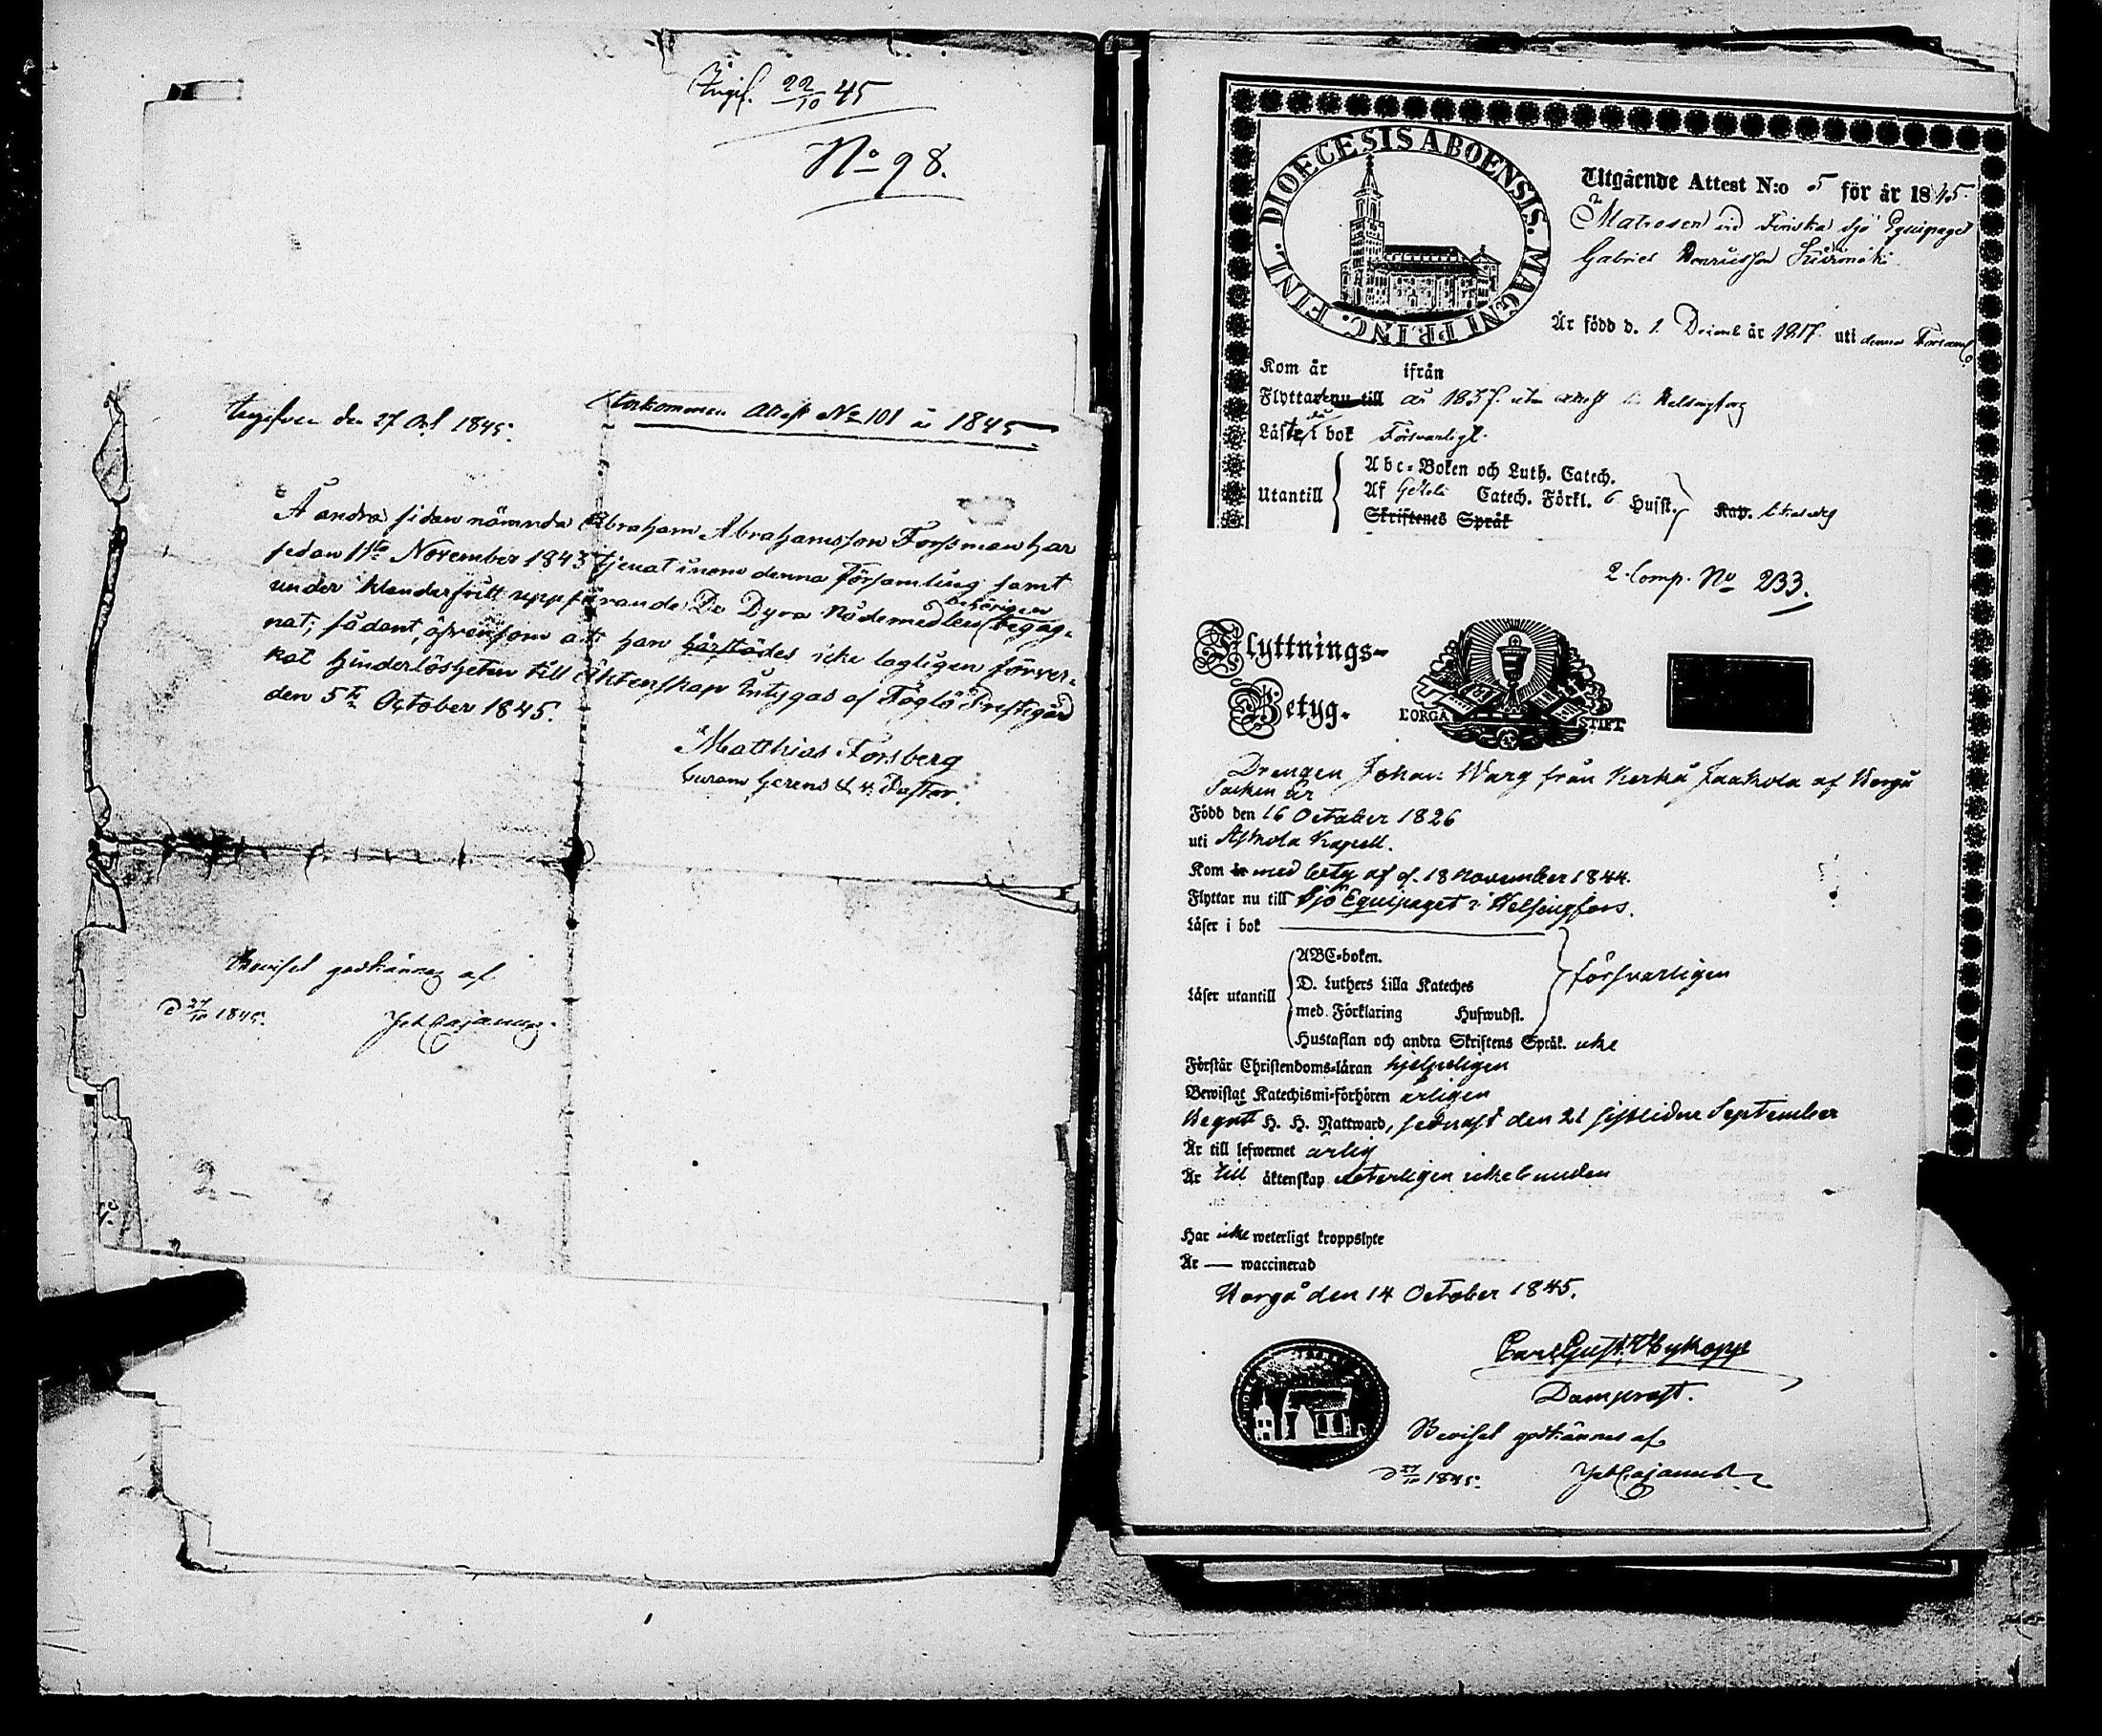 Ingif. 22/10 45
No 98.
Ingifven den 27 Oct 1845.
Inkommen Attest No 101 år 1845
Å andra sidan nämnda Abraham Abrahamsson Forssman har
sedan 1sta November 1843 tjenat inom denna församling samt
under klanderfritt uppförande De Dyra Nådemedlen behörigen begag-
nat; sådant, äfvensom att han härstädes icke lagligen förver-
kat hinderlösheten till Äktenskap intygas af Föglö Prestgård
den 5te October 1845.
Matthias Forsberg
Curam Gerens & v. Pastor.
Beviset godkännes af
d 27/10 1845. Cajanus
2
DIOECESIS ABOENSIS. MAGNI PRINC. FINL.
Utgående Attest N:o 5 för år 1845.
Matrosen vid Finska Sjö Equipaget
Gabriel Henriksson
Är född d. 1 Decemb år 1817 uti denna Församl
Kom år ifrån
Flyttade nu till år 1837 utan attest till Helsingfors
Läste då i bok Försvarligt.
Utantill
Abc-Boken och Luth. Catech.
Af Catech. Förkl. 6 Hufst.
Skriftenes Språk
2. Comp. No 233.
Flyttnings-
Betyg.
BORGÅ STIFT
Drengen Johan Warg från Kerko Jaakola af Borgå
Socken är
Född den 16 October 1826
uti Askola Kapell.
Kom år med betyg af d. 18 November 1844.
Flyttar nu till Sjö Equipaget i Helsingfors.
Läser i bok
Läser utantill
ABC-boken.
D. Luthers Lilla Kateches
med Förklaring Hufwudst.
försvarligen
Hustaflan och andra Skriftens Språk. icke
Förstår Christendoms-läran hjelpeligen
Bewistat Katechismi-förhören årligen
Begått H. H. Nattward, sednast den 21 sistlidne September
Är till lefwernet ärlig
Är till äktenskap veterligen icke bunden
Har icke weterligt kroppslyte
Är — waccinerad
Borgå den 14 October 1845.
Carl Gust. Wykopp
Domprost.
Beviset godkännes af
d 27/10 1845. Cajanus